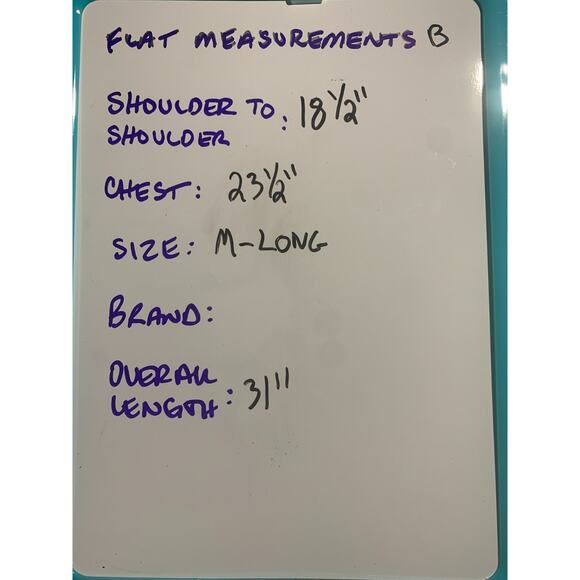 FLAT MEASUREMENTS B
SHOULDER TO
SHOULDER : 18 1/2"
CHEST: 23 1/2"
SIZE: M-LONG
BRAND:
OVERALL
LENGTH: 31"